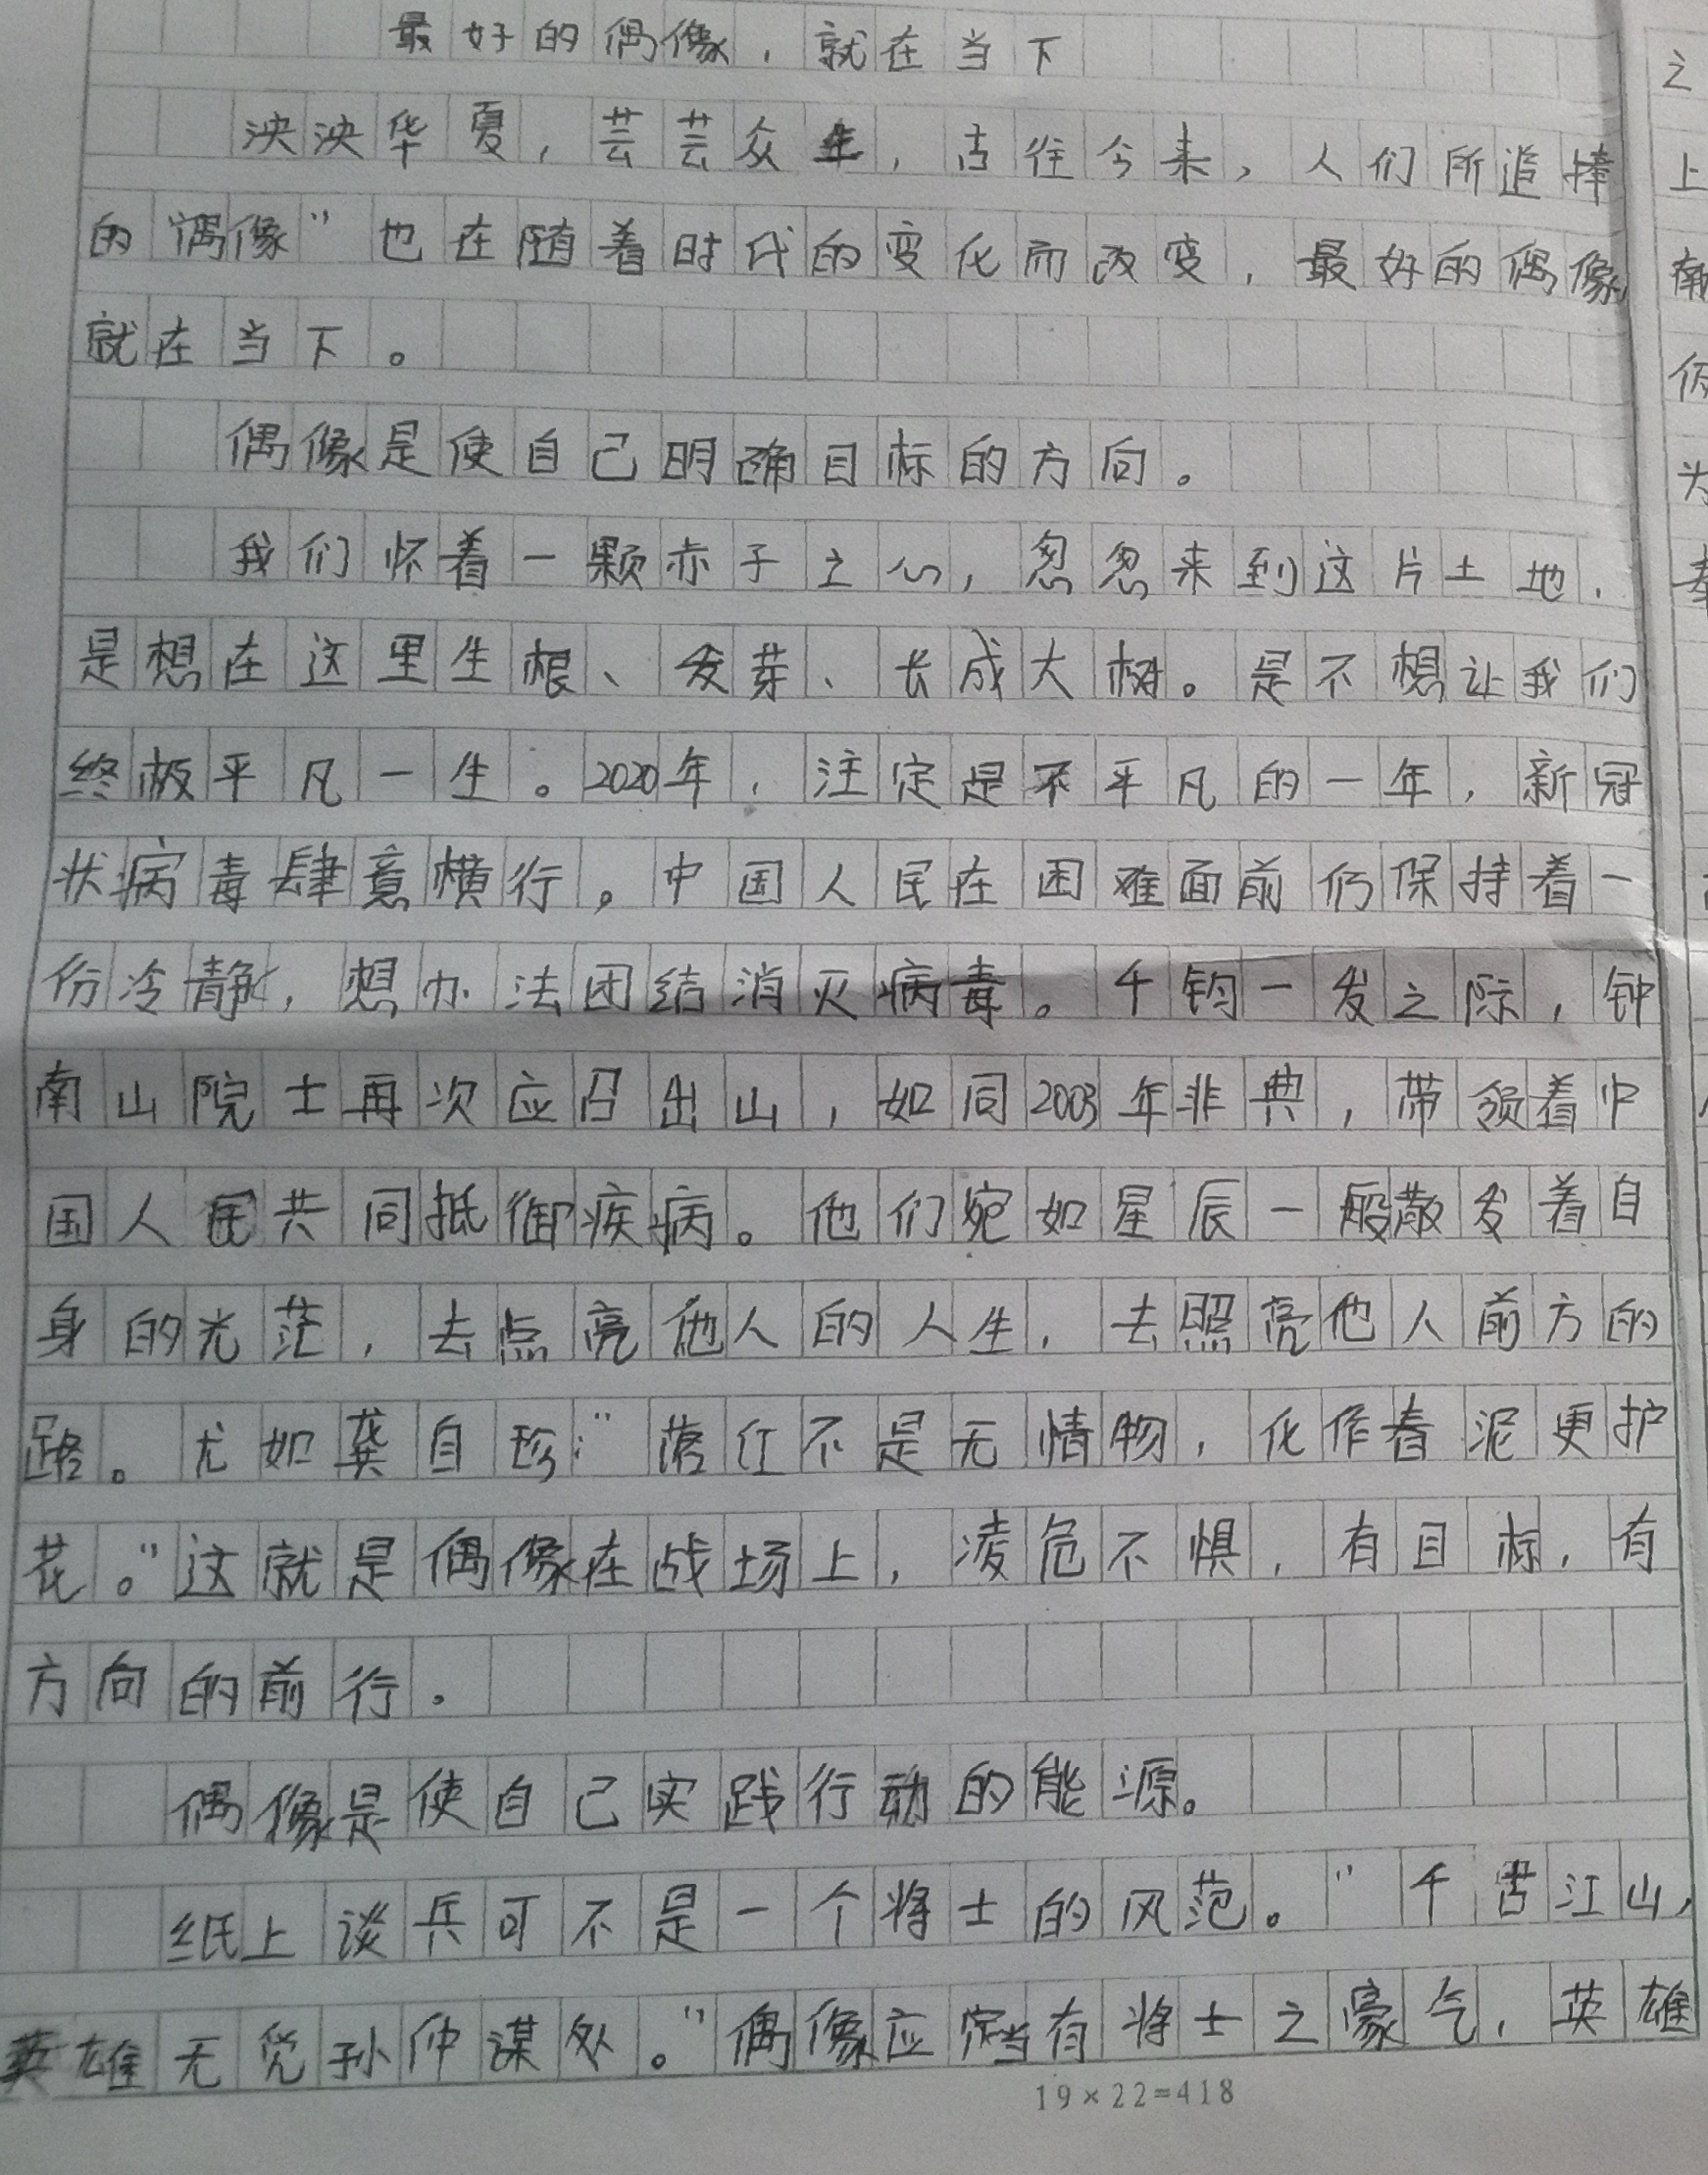 最好的偶像，就在当下
泱泱华夏，芸芸众生，古往今来，人们所追捧
的“偶像”也在随着时代的变化而改变，最好的偶像，
就在当下。
偶像是使自己明确目标的方向。
我们怀着一颗赤子之心，忽忽来到这片土地，
是想在这里生根、发芽、长成大树。是不想让我们
终极平凡一生。2020年，注定是不平凡的一年，新冠
状病毒肆意横行。中国人民在困难面前仍保持着一
份冷静，想办法团结消灭病毒。千钧一发之际，钟
南山院士再次应召出山，如同2003年非典，带领着中
国人民共同抵御疾病。他们宛如星辰一般散发着自
身的光茫，去点亮他人的人生，去照亮他人前方的
路。尤如龚自珍：“落红不是无情物，化作春泥更护
花。”这就是偶像在战场上，凌危不惧，有目标，有
方向的前行。
偶像是使自己实践行动的能源。
纸上谈兵可不是一个将士的风范。“千苦江山，
英雄无觉孙仲谋处。”偶像应当有将士之豪气，英雄
19×22=418
之
上
为